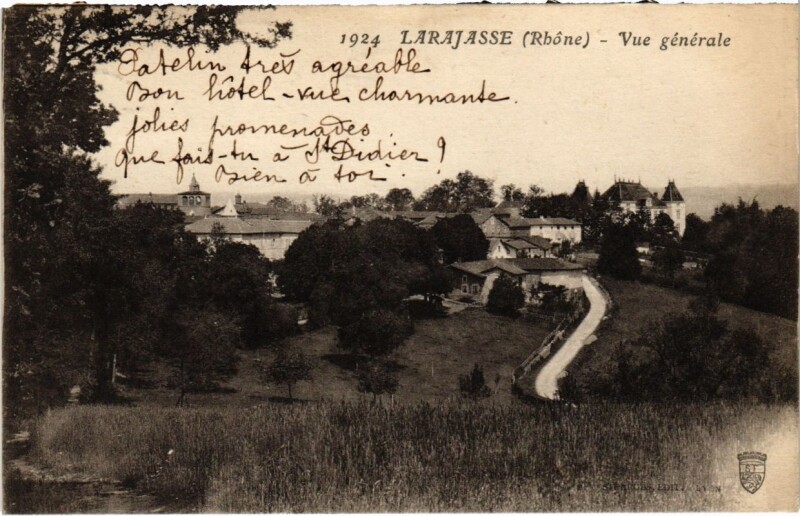 1924 LARAJASSE (Rhône) - Vue générale
Patelin très agréable
Bon hôtel - vue charmante.
jolies promenades
que fais-tu à St Didier ?
Bien à toi.
ST
EDIT.